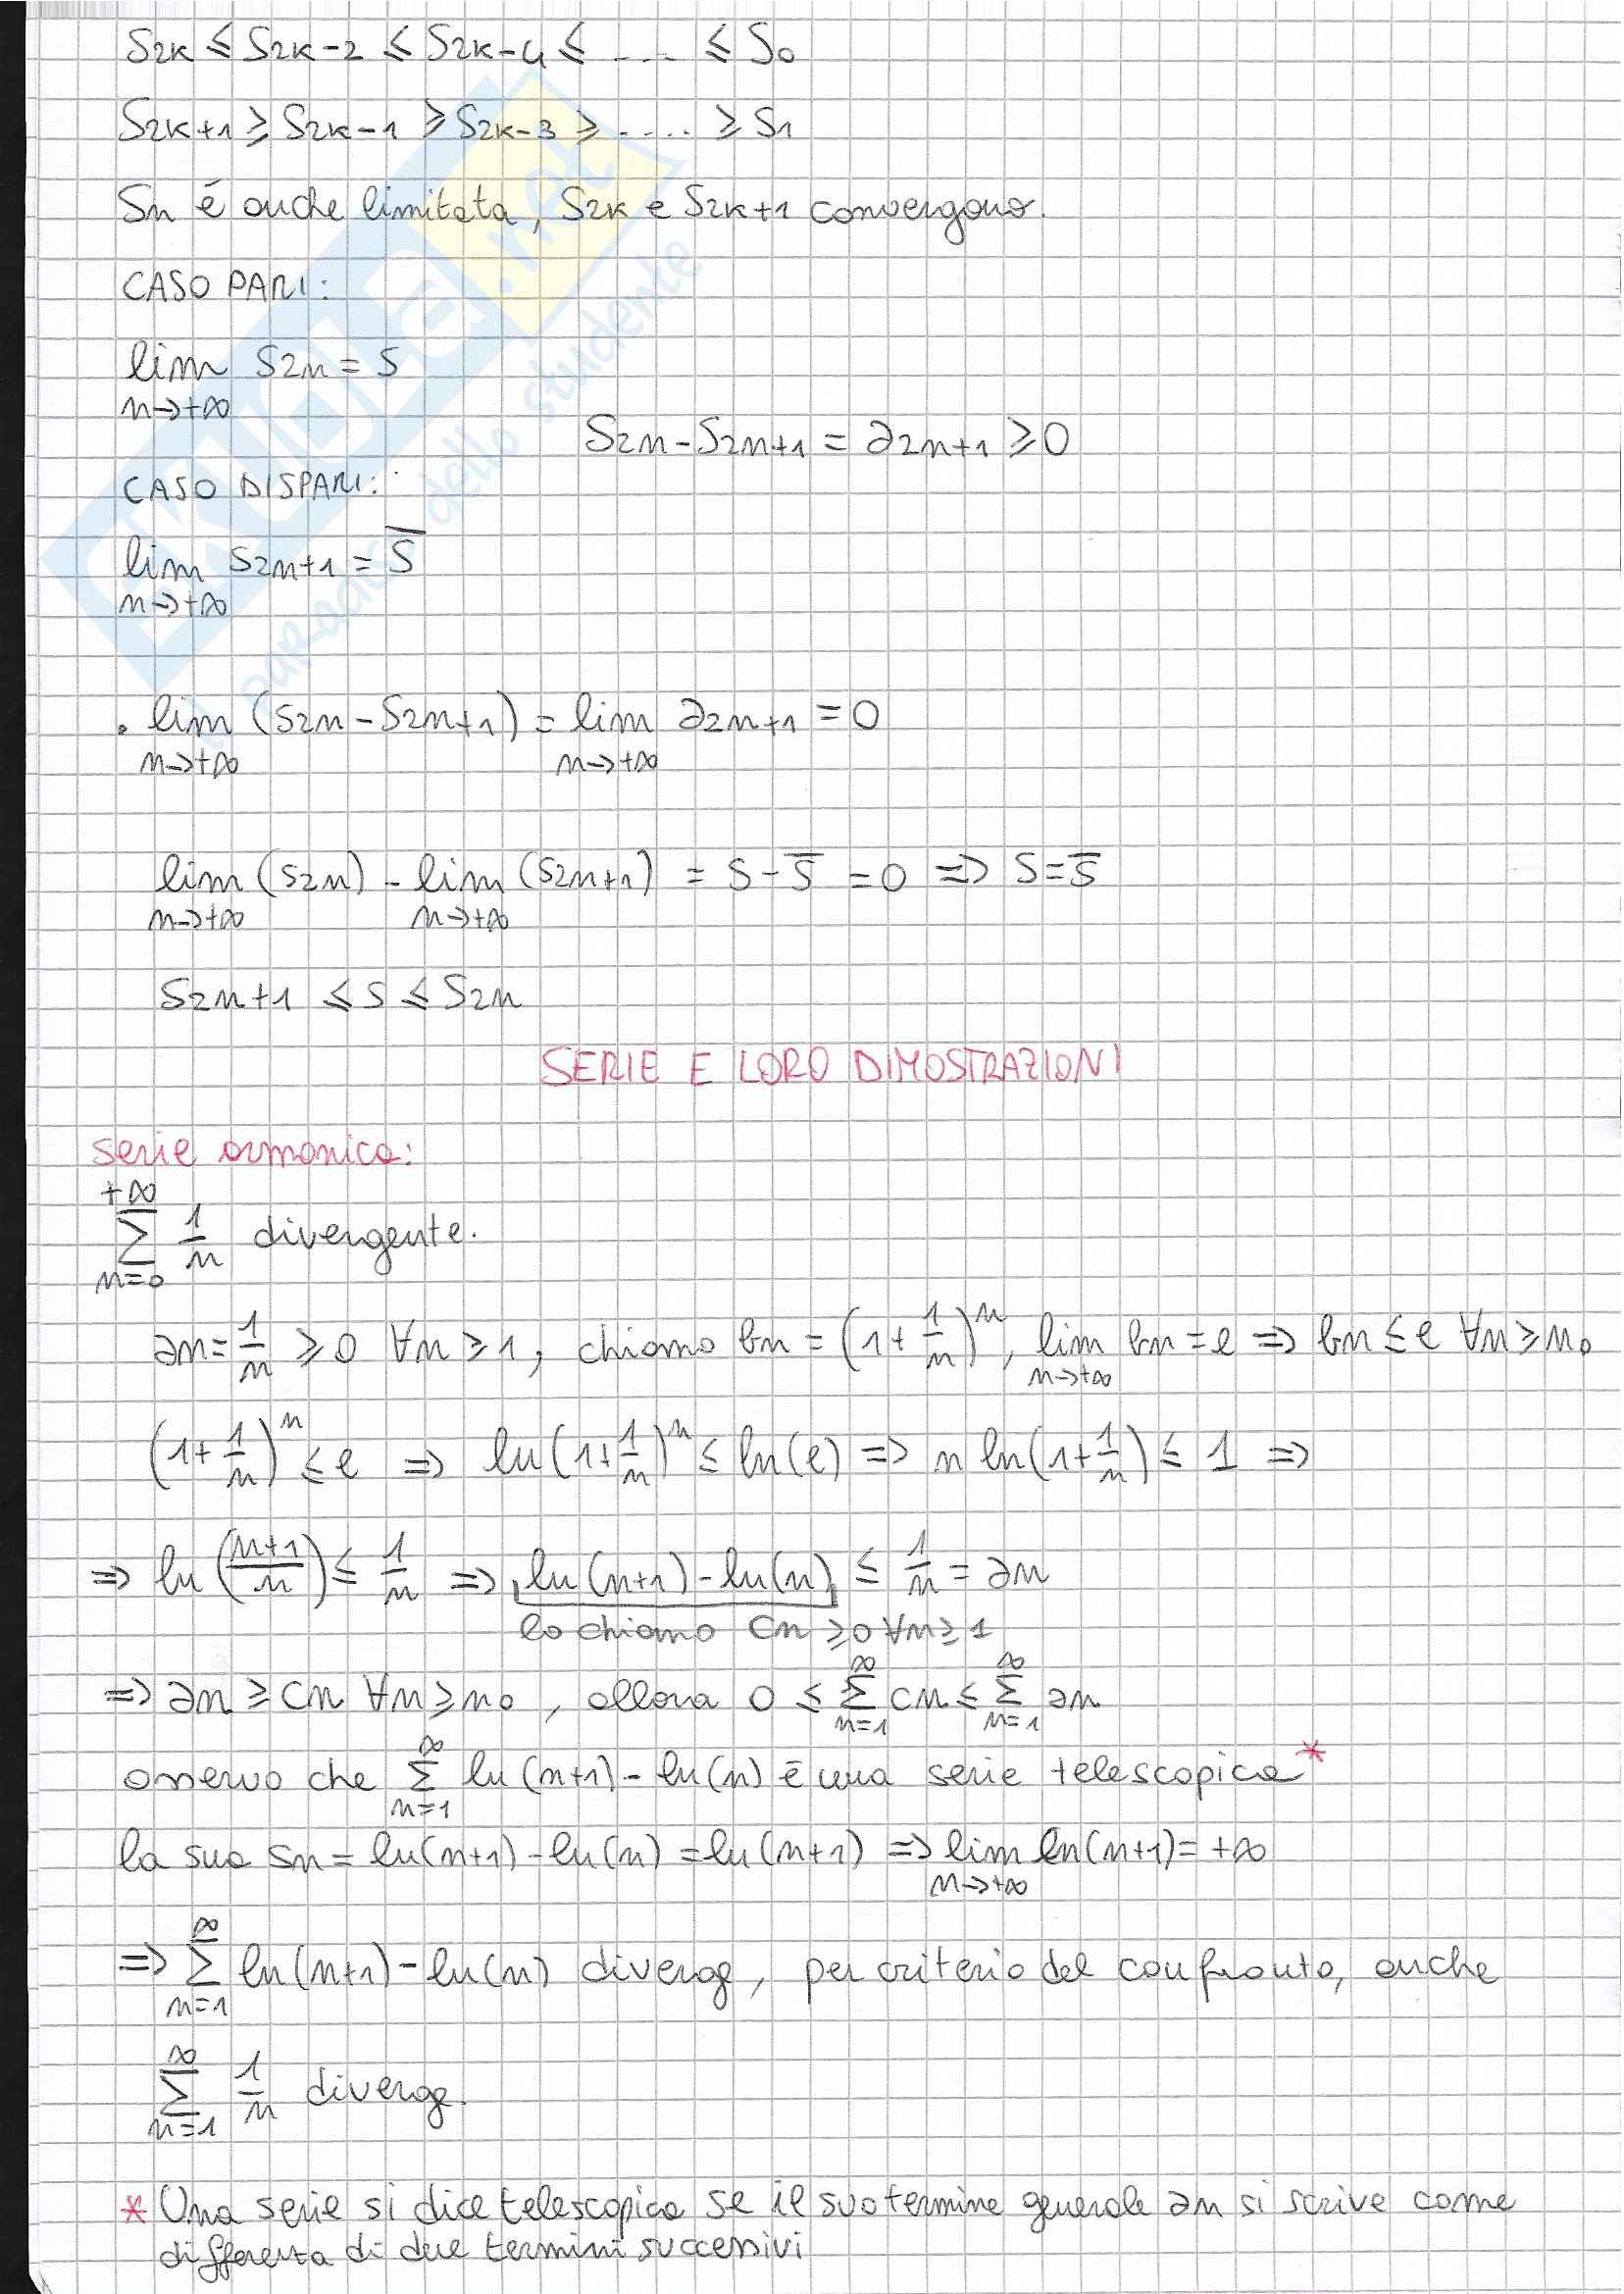 S2k ≤ S2k-2 ≤ S2k-4 ≤ .... ≤ S0
S2k+1 ≥ S2k-1 ≥ S2k-3 ≥ ..... ≥ S1
Sn è anche limitata, S2k e S2k+1 convergono.
CASO PARI:
lim S2n = S
n→+∞
S2n - S2n+1 = a2n+1 ≥ 0
CASO DISPARI:
lim S2n+1 = S̅
n→+∞
. lim (S2n - S2n+1) = lim a2n+1 = 0
n→+∞ n→+∞
lim (S2n) - lim (S2n+1) = S - S̅ = 0 => S = S̅
n→+∞ n→+∞
S2n+1 ≤ S ≤ S2n
SERIE E LORO DIMOSTRAZIONI
serie armonica:
+∞
∑ 1/n divergente.
n=0
an = 1/n ≥ 0 ∀n ≥ 1, chiamo bn = (1+1/n)^n, lim bn = e => bn ≤ e ∀n ≥ n0
n→+∞
(1+1/n)^n ≤ e => ln(1+1/n)^n ≤ ln(e) => n ln(1+1/n) ≤ 1 =>
=> ln((n+1)/n) ≤ 1/n => ln(n+1) - ln(n) ≤ 1/n = an
lo chiamo Cn ≥ 0 ∀n ≥ 1
=> an ≥ cn ∀n ≥ n0, allora 0 ≤ ∑ cn ≤ ∑ an
∞ ∞
n=1 n=1
osservo che ∑ ln(n+1) - ln(n) è una serie telescopica*
∞
n=1
la sua Sn = ln(n+1) - ln(n) = ln(n+1) => lim ln(n+1) = +∞
n→+∞
∞
=> ∑ ln(n+1) - ln(n) diverge, per criterio del confronto, anche
n=1
∞
∑ 1/n diverge.
n=1
* Una serie si dice telescopica se il suo termine generale an si scrive come
differenza di due termini successivi
skuola.net
il paradiso dello studente